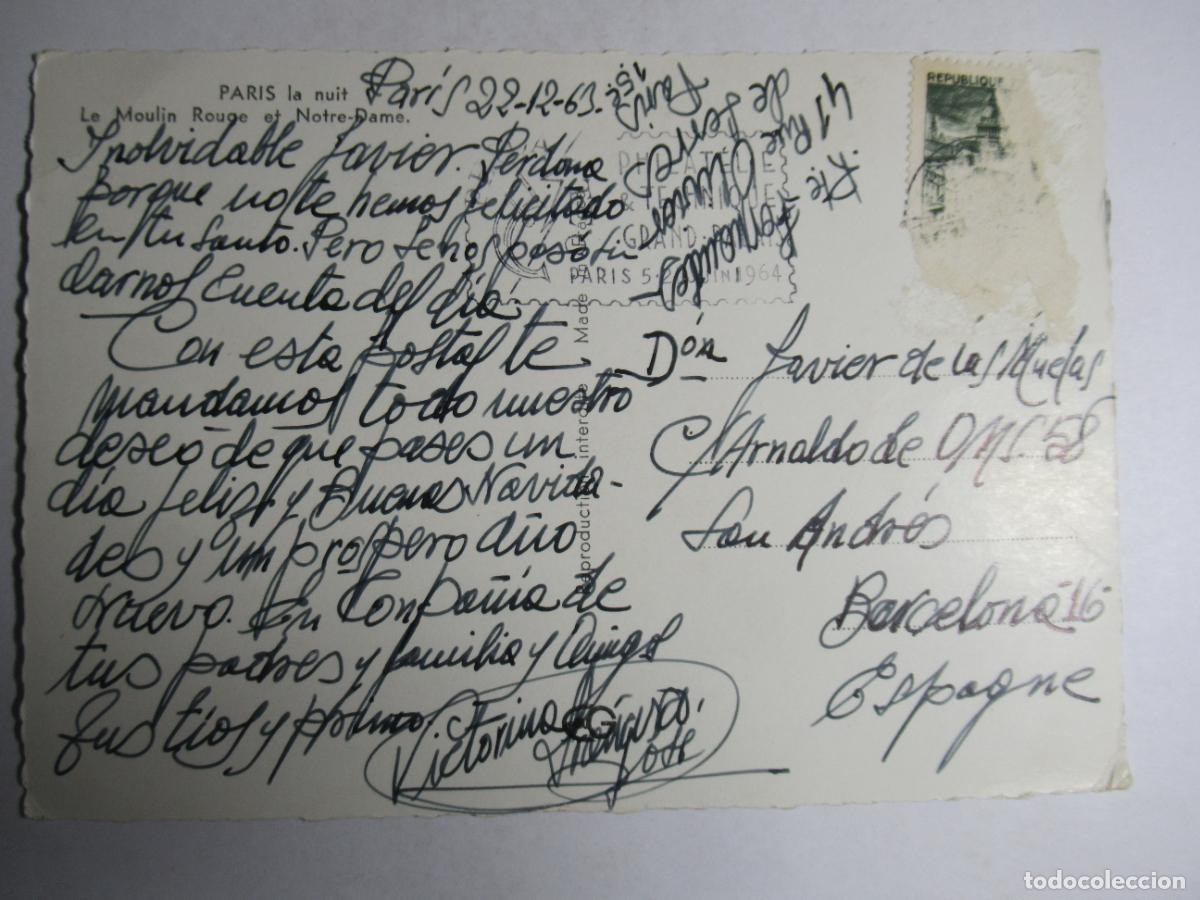 PARIS la nuit
Le Moulin Rouge et Notre-Dame.
París 22-12-63.
Inolvidable Javier. Perdona
porque no te hemos felicitado
en tu Santo. Pero se nos pasó sin
darnos cuenta del día.
Con esta postal te
mandamos todo nuestro
deseo de que pases un
día feliz y Buenas Navida-
des y un prospero año
Nuevo. En Conpañia de
tus padres y familia y Amigos
tus tios y primo.
Victorina
Francisco
Jose
CG
Reproduction interdite Made in
PHILATELIE
& TECHNIQUE
GRAND-PALAIS
PARIS 5-2 JUIN 1964
Rte.
41 Rue
de
París 15
Fernandez
REPUBLIQUE
Dón Javier de las Muelas
C/ Arnaldo de OMS. 58
San Andrés
Barcelona-16-
Espagne
todocoleccion